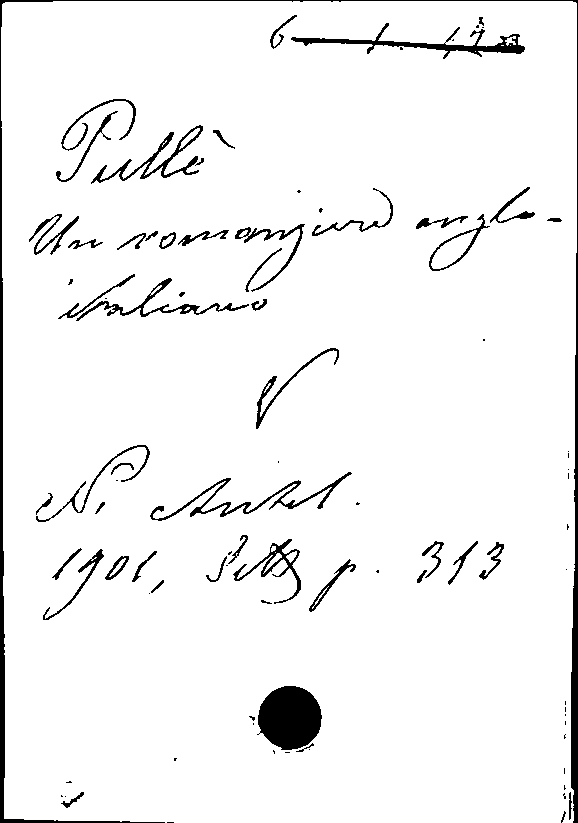 Pullè
Un romanziere anglo-
italiano
V
N. Antol.
1901, p. 313